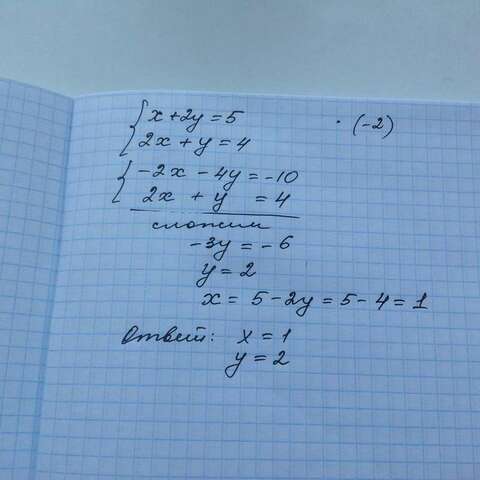 x + 2y = 5 · (-2)
2x + y = 4
-2x - 4y = -10
2x + y = 4
сложим
-3y = -6
y = 2
x = 5 - 2y = 5 - 4 = 1
Ответ: x = 1
y = 2